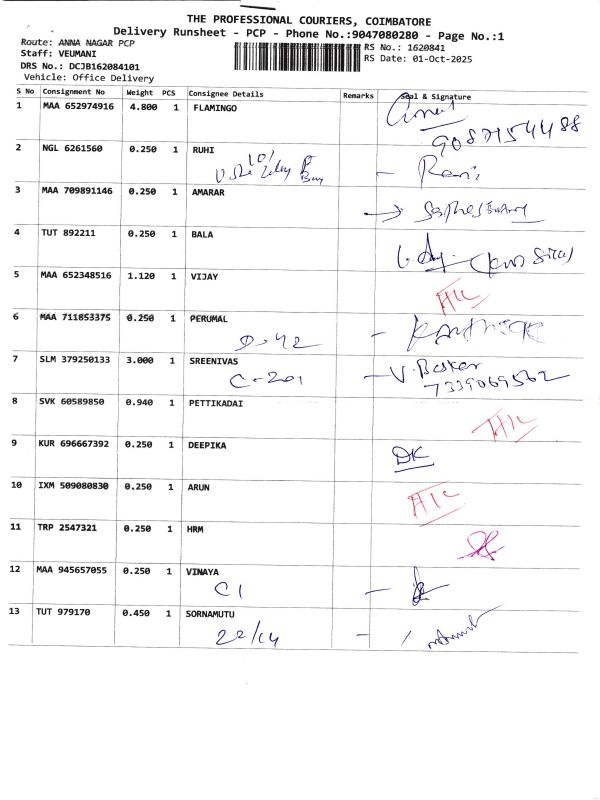 THE PROFESSIONAL COURIERS, COIMBATORE
Delivery Runsheet - PCP - Phone No.:9047080280 - Page No.:1
Route: ANNA NAGAR PCP
Staff: VEUMANI
DRS No.: DCJB162084101
Vehicle: Office Delivery
RS No.: 1620841
RS Date: 01-Oct-2025
S No Consignment No Weight PCS Consignee Details Remarks Seal & Signature
1 MAA 652974916 4.800 1 FLAMINGO
9087154488
2 NGL 6261560 0.250 1 RUHI
101
3 MAA 709891146 0.250 1 AMARAR
4 TUT 892211 0.250 1 BALA
5 MAA 652348516 1.120 1 VIJAY
HIL
6 MAA 711853375 0.250 1 PERUMAL
D-42
7 SLM 379250133 3.000 1 SREENIVAS
C-201 - V. Basker
7339069562
8 SVK 60589850 0.940 1 PETTIKADAI
HIL
9 KUR 696667392 0.250 1 DEEPIKA
DK
10 IXM 509080830 0.250 1 ARUN
HIL
11 TRP 2547321 0.250 1 HRM
12 MAA 945657055 0.250 1 VINAYA
C1
13 TUT 979170 0.450 1 SORNAMUTU
22/14